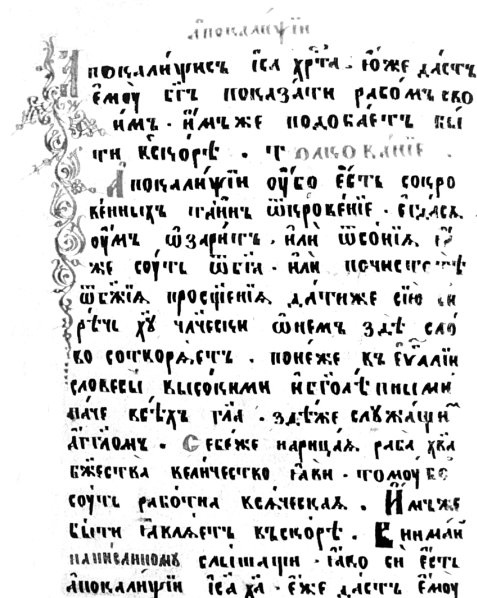 а҆покалиѱїи
Апокали́ѱисъ і҆са хрⷭ҇та · ю҆́же да́стъ
є҆моу̀ бг҃ъ показа́ти рабо́мъ сво
и҆́мъ · и҆́мъже подоба́етъ бы́
ти въско́рѣ · т олкова́нїе ·
А҆покали́ѱїи оу҆́бо є҆́сть сокро
ве́нныхъ та́инъ ѿкрове́нїе ·
оу҆́мъ ѡ҆зари́тъ · и҆лѝ ѿ со́нїѧ
же соу́ть ѿ бг҃а · и҆лѝ
ѿ бж҃їѧ просⷡ҇ѣще́нїѧ да́тиже сїю̀
рѣ́чь хⷭ҇оу чл҃чески ѡ҆ не́мъ здѣ̀ сло́
во сотворѧ́етъ · поне́же въ є҆ѵⷢ҇алїи
словесы̀ высо́кими и҆ бг҃олѣ́пными
па́че всѣ́хъ гл҃а · здѣ́же слꙋжа́щи
а҆́гг҃ломъ · Себе́же нарица́ѧ раба̀ хв҃а
бжⷭ҇ества̀ вели́чество ꙗ҆́ви · томоу̀ бо
соу́ть рабо́тна всѧ́ческаѧ · И҆́мъже
бы́ти ꙗ҆влѧ́етъ въско́рѣ · Внима́й
напи́санномъ слы́шащи · ꙗ҆́ко сѝ є҆́сть
а҆покали́ѱїи і҆са ха · є҆́же да́стъ є҆моу̀